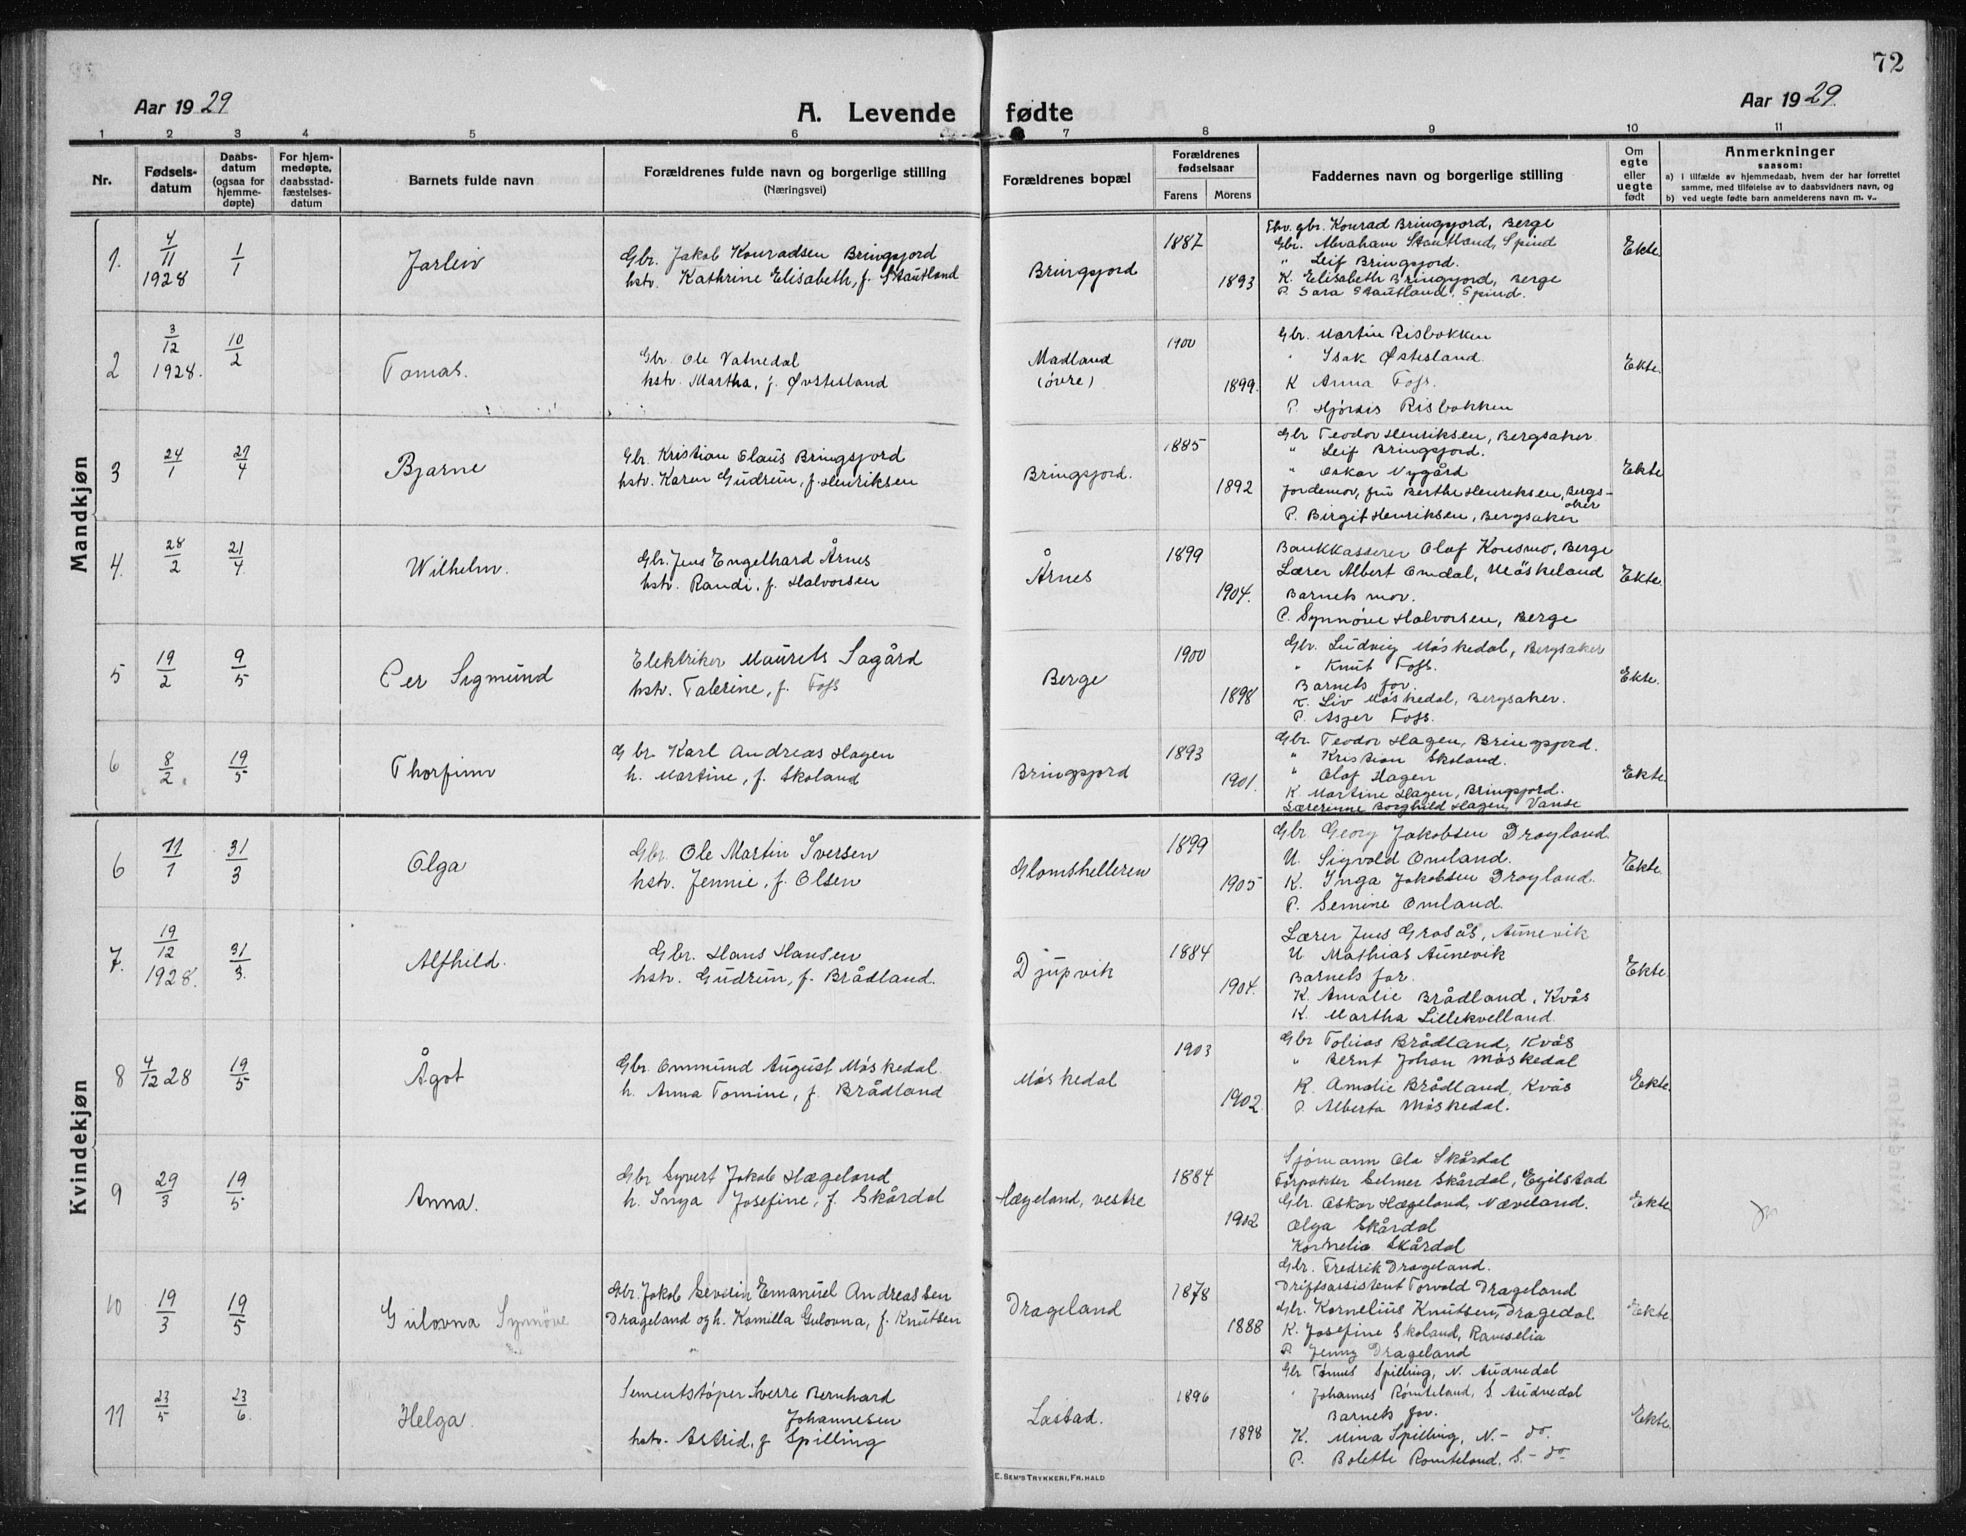 72
Aar 1929
A. Levende fødte
Aar 1929
1 2 3 4 5 6 7 8 9 10 11
Nr.
Fødsels-
datum
Daabs-
datum
(ogsaa for
hjemme-
døpte)
For hjem-
medøpte,
daabsstad-
fæstelses-
datum
Barnets fulde navn
Forældrenes fulde navn og borgerlige stilling
(Næringsvei)
Forældrenes bopæl
Forældrenes
fødselsaar
Farens Morens
Faddernes navn og borgerlige stilling
Om
egte
eller
uegte
født
Anmerkninger
saasom:
a) i tilfælde av hjemmedaab, hvem der har forrettet
samme, med tilføielse av to daabsvidners navn, og
b) ved uegte fødte barn anmelderens navn m. v..
Mandkjøn
1. 4/11 1928 1/1 Jarleiv
Gbr. Jakob Konradsen Bringsjord
hstr. Kathrine Elisabeth, f. Stautland
Bringsjord 1887 1893
Gbr. Konrad Bringsjord, Berge
Gbr. Abraham Stautland, Spind
" Leif Bringsjord.
K. Elisabeth Bringsjord, Berge
P. Sara Stautland, Spind.
Ekte.
2 3/12 1928. 10/2 Tomas.
Gbr. Ole Vatnedal
hstr. Martha, f. Øvstesland
Madland
(øvre)
1900 1899.
Gbr. Martin Risbakken
" Isak Østesland.
K Anna Foss.
P. Hjördis Risbakken
Ekte.
3 24/1 27/4 Bjarne
Gbr. Kristian Olaus Bringsjord
hstr. Karen Gudrun, f. Henriksen
Bringsjord. 1885 1892
Gbr Teodor Henriksen, Bergsaker.
" Leif Bringsjord.
" Oskar Nygård
Jordemor, fru Berthe Henriksen, Bergs-
aker
P. Birgit Henriksen, Bergsaker
Ekte
4. 28/2 21/4. Wilhelm.
Gbr. Jens Engelhard Årnes
hstr. Randi, f. Halvorsen
Årnes 1899 1904.
Bankkasserer Olaf Konsmo, Berge
Lærer Albert Omdal, Møskeland
Barnets mor.
P. Synnöve Halvorsen, Berge
Ekte.
5 19/2 9/5 Per Sigmund
Elektriker Maurets Sagård
hstr. Talerine, f. Foss
Berge 1900 1898
Gbr. Ludvig Møskedal, Bergsaker
" Knut Foss.
Barnets far.
K. Liv Møskedal, Bergsaker.
P. Asger Foss.
Ekte.
6 8/2. 19/5 Thorfinn
Gbr. Karl Andreas Hagen
h. Martine, f. Skoland
Bringsjord 1893 1901.
Gbr. Teodor Hagen, Bringsjord.
" Kristian Skoland.
" Olaf Hagen
K Martine Hagen, Bringsjord.
Lærerinne Borghild Hagen, Vanse
Ekte.
Kvindekjøn
6 11/1 31/3 Olga
Gbr. Ole Martin Iversen
hstr. Jennie, f. Olsen
Glomshelleren 1899 1905
Gbr. Georg Jakobsen Drøyland.
U. Sigvald Omland.
K. Inga Jakobsen Drøyland.
P. Semine Omland.
Ekte.
7. 19/12 1928. 31/3. Alfhild.
Gbr. Hans Hansen
hstr. Gudrun, f. Brådland.
Djupvik 1884 1904.
Lærer Jens Grosås, Aunevik
U Mathias Aunevik
Barnets far.
K. Amalie Brådland, Kvås
K. Martha Lillekvelland.
Ekte.
8 4/12 28 19/5 Ågot
Gbr. Ommund August Møskedal.
h. Anna Tomine, f. Brådland
Møskedal 1903 1902.
Gbr Tobias Brådland, Kvås
" Bernt Johan Møskedal
K. Amalie Brådland, Kvås
P. Alberta Møskedal.
Ekte.
9 29/3 19/5 Anna.
Gbr. Syvert Jakob Hægeland
h. Inga Josefine, f. Skårdal
Hægeland, vestre 1884 1902
Sjømann Ola Skårdal
Forpakter Selmer Skårdal, Egilstad
Gbr. Oskar Hægeland, Næveland.
Olga Skårdal
Kornelia Skårdal
Ekte.
10 19/3 19/5 Gulovna Synnöve
Gbr. Jakob Severin Emanuel Andreassen
Drageland og h. Kamilla Gulovna, f. Knutsen
Drageland 1878 1888
Gbr. Fredrik Drageland.
Driftsassistent Torvald Drageland
Gbr. Kornelius Knutsen, Dragedal.
K. Josefine Skoland, Ramselia
P. Jenny Drageland
Ekte.
11 23/5 23/6. Helga.
Sementstøper Sverre Bernhard
Johannesen
hstr. Astrid, f Spilling
Lastad. 1896 1898
Gbr Tønnes Spilling, N. Audnedal
" Johannes Romteland, S. Audnedal
Barnets far.
K. Mina Spilling, N. - do.
P. Bolette Romteland. S. - do
Ekte.
E. SEM'S TRYKKERI, FR. HALD